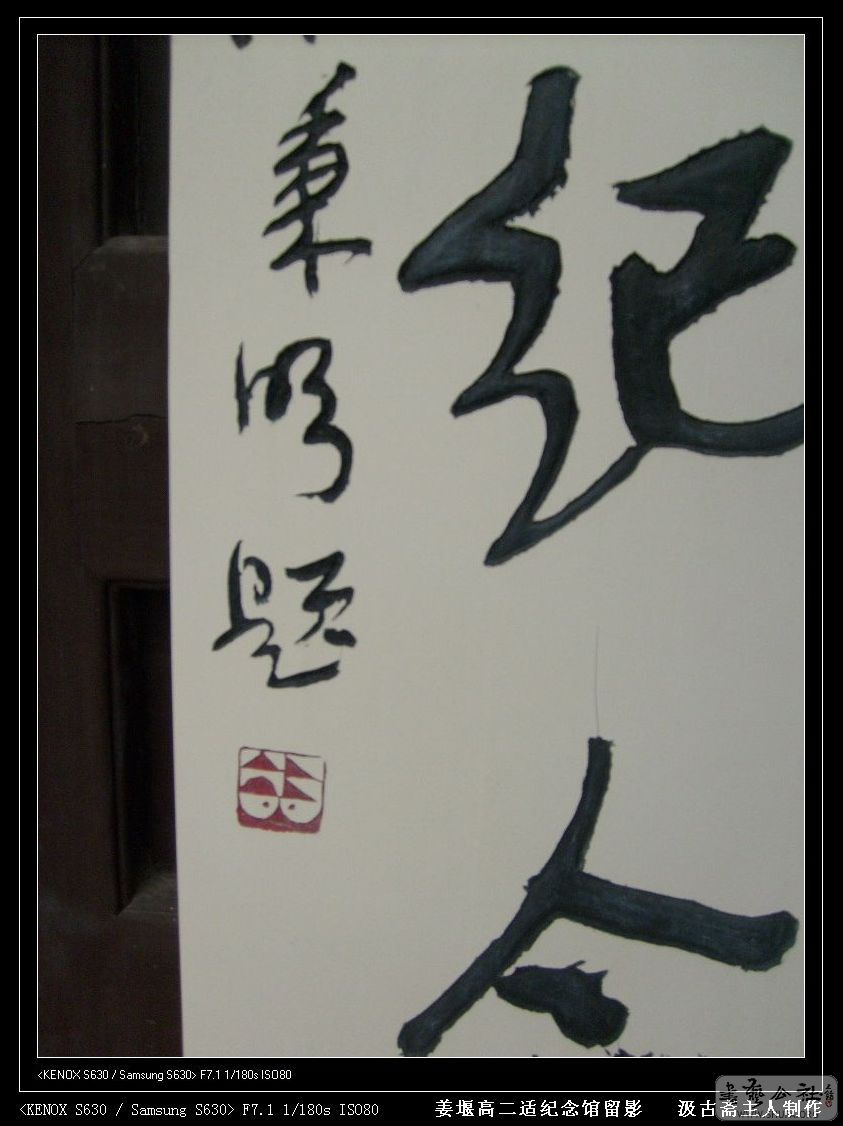 纪
秉明题
<KENOX S630 / Samsung S630> F7.1 1/180s ISO80
<KENOX S630 / Samsung S630> F7.1 1/180s ISO80
姜堰高二适纪念馆留影
汲古斋主人制作